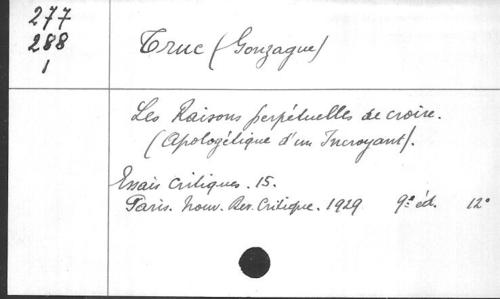 277
288
1
Truc (Gonzague)
Les Raisons perpétuelles de croire.
(Apologétique d'un Incroyant).
Essais critiques. 15.
Paris. Nouv. Rev. Critique. 1929 9e éd. 12°